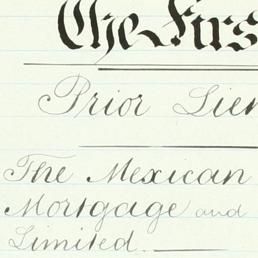 The Firs
Prior Lien
The Mexican
Mortgage and
Limited.